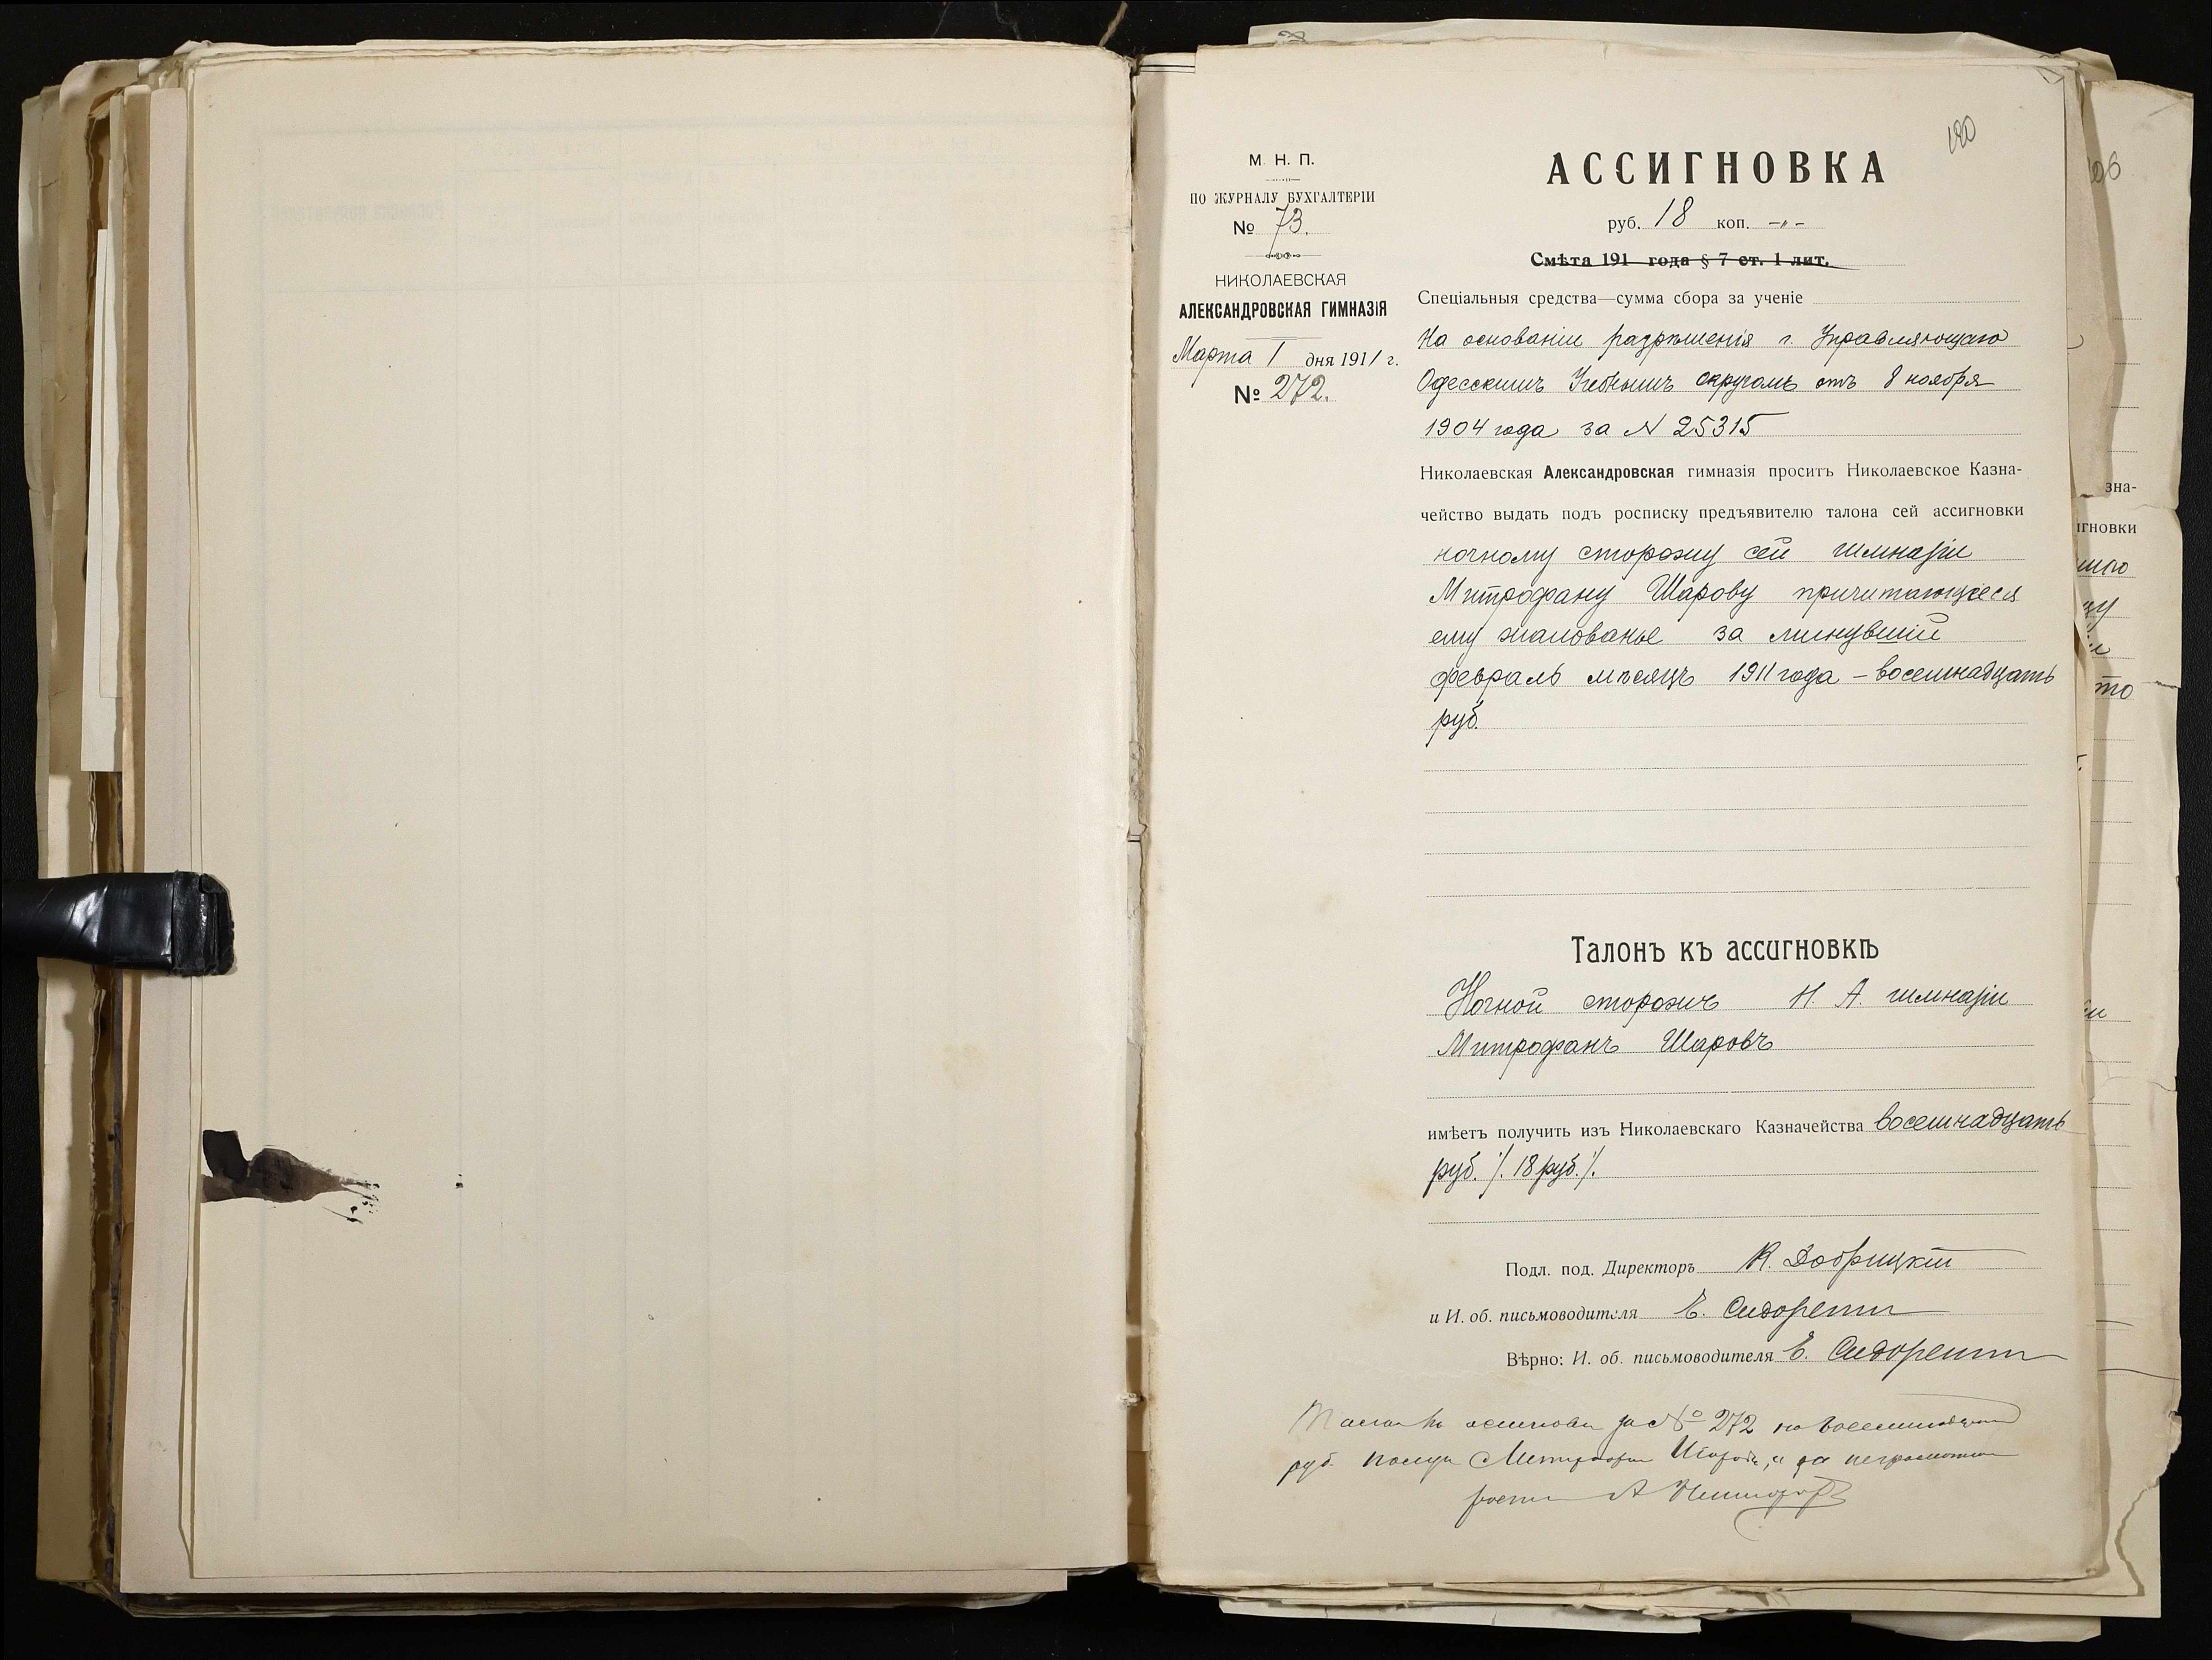 190
М. Н. П.
ПО ЖУРНАЛУ БУХГАЛТЕРІИ
№ 73.
НИКОЛАЕВСКАЯ
АЛЕКСАНДРОВСКАЯ ГИМНАЗІЯ
Марта 1 дня 1911 г.
№ 272.
АССИГНОВКА
руб. 18 коп. -„-
Смѣта 191 года § 7 ст. 1 лит.
Спеціальныя средства—сумма сбора за ученіе
На основаніи разрѣшенія г. Управляющаго
Одесскимъ Учебнымъ округомъ отъ 8 ноября
1904 года за N 25315
Николаевская Александровская гимназія проситъ Николаевское Казна-
чейство выдать подъ росписку предъявителю талона сей ассигновки
ночному сторожу сей гимназіи
Митрофану Шарову причитающееся
ему жалованье за минувшій
февраль мѣсяцъ 1911 года – восемнадцать
руб.
Талонъ къ ассигновкѣ
Ночной сторожъ Н. А. гимназіи
Митрофанъ Шаровъ
имѣетъ получить изъ Николаевскаго Казначейства восемнадцать
руб. /. 18 руб. /.
Подл. под. Директоръ К. Добрицкій
и И. об. письмоводителя Е.
Вѣрно: И. об. письмоводителя Е.
за № 272 на
руб.
А
206
зна-
игновки